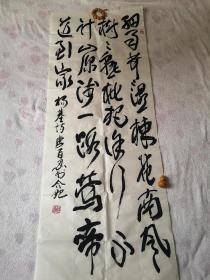 细雨茸茸湿楝花南风
树々熟枇杷徐行不
计山深浅一路莺啼
送到家 杨基诗